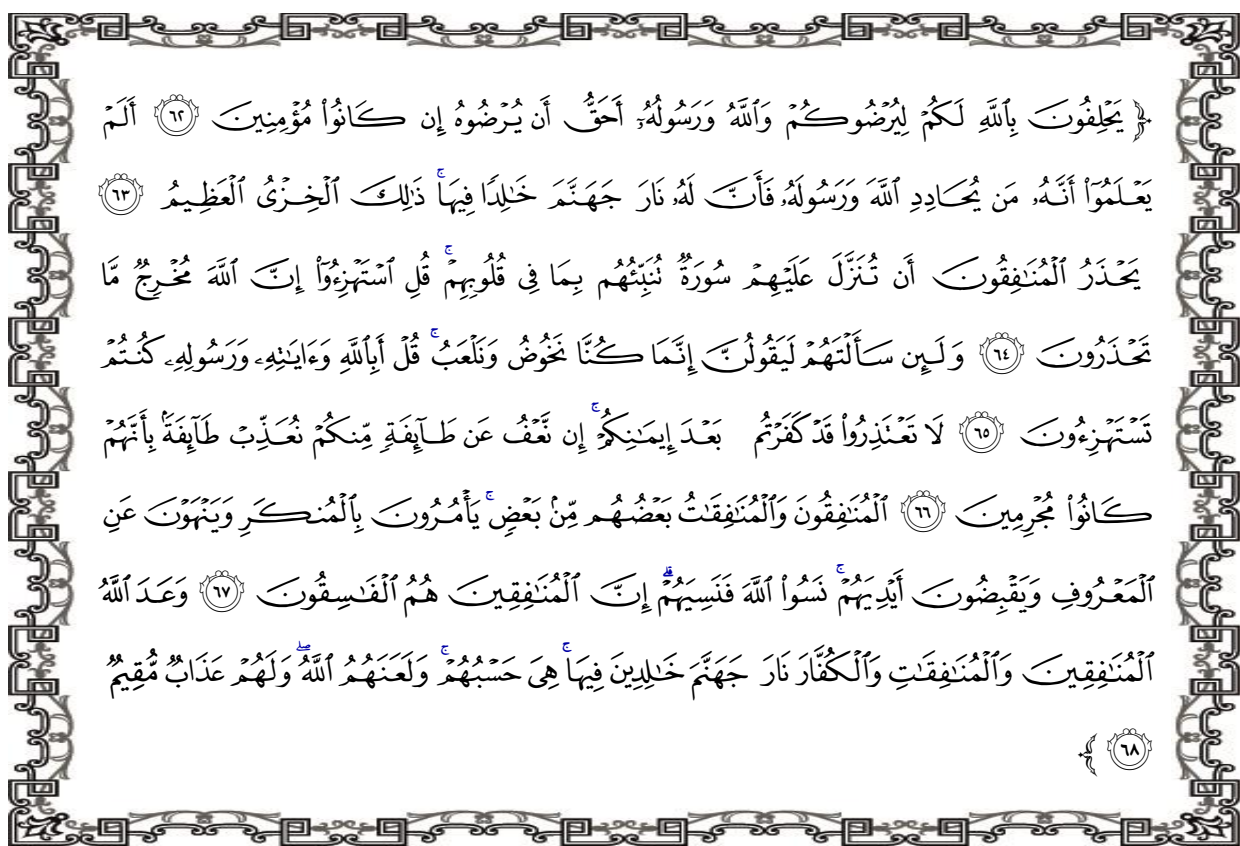 ﴿ يَحۡلِفُونَ بِٱللَّهِ لَكُمۡ لِيُرۡضُوكُمۡ وَٱللَّهُ وَرَسُولُهُۥٓ أَحَقُّ أَن يُرۡضُوهُ إِن كَانُواْ مُؤۡمِنِينَ ٦٢ أَلَمۡ
يَعۡلَمُوٓاْ أَنَّهُۥ مَن يُحَادِدِ ٱللَّهَ وَرَسُولَهُۥ فَأَنَّ لَهُۥ نَارَ جَهَنَّمَ خَٰلِدٗا فِيهَاۚ ذَٰلِكَ ٱلۡخِزۡيُ ٱلۡعَظِيمُ ٦٣
يَحۡذَرُ ٱلۡمُنَٰفِقُونَ أَن تُنَزَّلَ عَلَيۡهِمۡ سُورَةٞ تُنَبِّئُهُم بِمَا فِي قُلُوبِهِمۡۚ قُلِ ٱسۡتَهۡزِءُوٓاْ إِنَّ ٱللَّهَ مُخۡرِجٞ مَّا
تَحۡذَرُونَ ٦٤ وَلَئِن سَأَلۡتَهُمۡ لَيَقُولُنَّ إِنَّمَا كُنَّا نَخُوضُ وَنَلۡعَبُۚ قُلۡ أَبِٱللَّهِ وَءَايَٰتِهِۦ وَرَسُولِهِۦ كُنتُمۡ
تَسۡتَهۡزِءُونَ ٦٥ لَا تَعۡتَذِرُواْ قَدۡ كَفَرۡتُم بَعۡدَ إِيمَٰنِكُمۡۚ إِن نَّعۡفُ عَن طَآئِفَةٖ مِّنكُمۡ نُعَذِّبۡ طَآئِفَةَۢ بِأَنَّهُمۡ
كَانُواْ مُجۡرِمِينَ ٦٦ ٱلۡمُنَٰفِقُونَ وَٱلۡمُنَٰفِقَٰتُ بَعۡضُهُم مِّنۢ بَعۡضٖۚ يَأۡمُرُونَ بِٱلۡمُنكَرِ وَيَنۡهَوۡنَ عَنِ
ٱلۡمَعۡرُوفِ وَيَقۡبِضُونَ أَيۡدِيَهُمۡۚ نَسُواْ ٱللَّهَ فَنَسِيَهُمۡۗ إِنَّ ٱلۡمُنَٰفِقِينَ هُمُ ٱلۡفَٰسِقُونَ ٦٧ وَعَدَ ٱللَّهُ
ٱلۡمُنَٰفِقِينَ وَٱلۡمُنَٰفِقَٰتِ وَٱلۡكُفَّارَ نَارَ جَهَنَّمَ خَٰلِدِينَ فِيهَاۚ هِيَ حَسۡبُهُمۡۚ وَلَعَنَهُمُ ٱللَّهُۖ وَلَهُمۡ عَذَابٞ مُّقِيمٞ
٦٨ ﴾